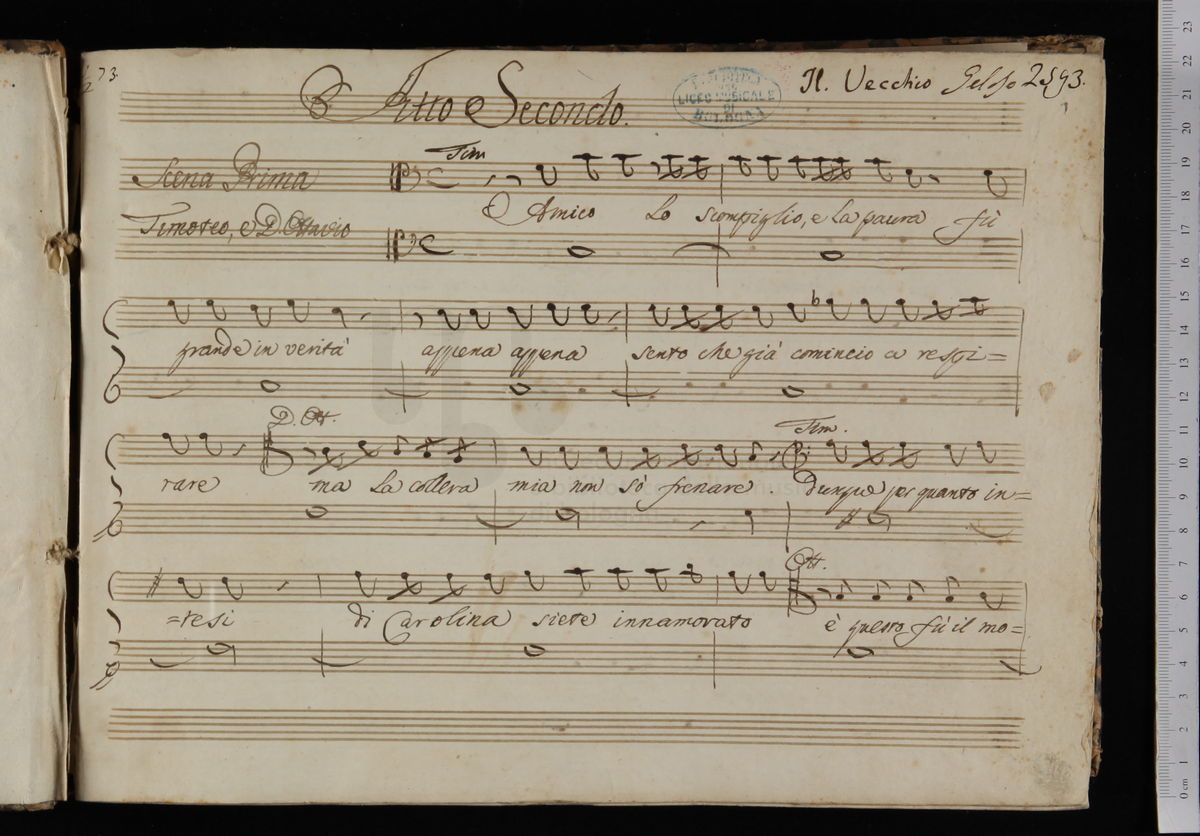 73.
Atto Secondo.
Il Vecchio Geloso
1
BIBLIOTECA
DEL
LICEO MUSICALE
DI
BOLOGNA
Scena Prima
Tim
O Amico Lo scompiglio, e la paura fù
Timoteo, e D. Ottavio
grande in verità appena appena sento che già comincio a respi=
D. Ott.
Tim.
rare ma La collera mia non sò frenare. Dunque per quanto in=
Ott.
=tesi di Carolina siete innamorato è questo fù il mo=
23
22
21
20
19
18
17
16
15
14
13
12
11
10
9
8
7
6
5
4
3
2
1
0 cm